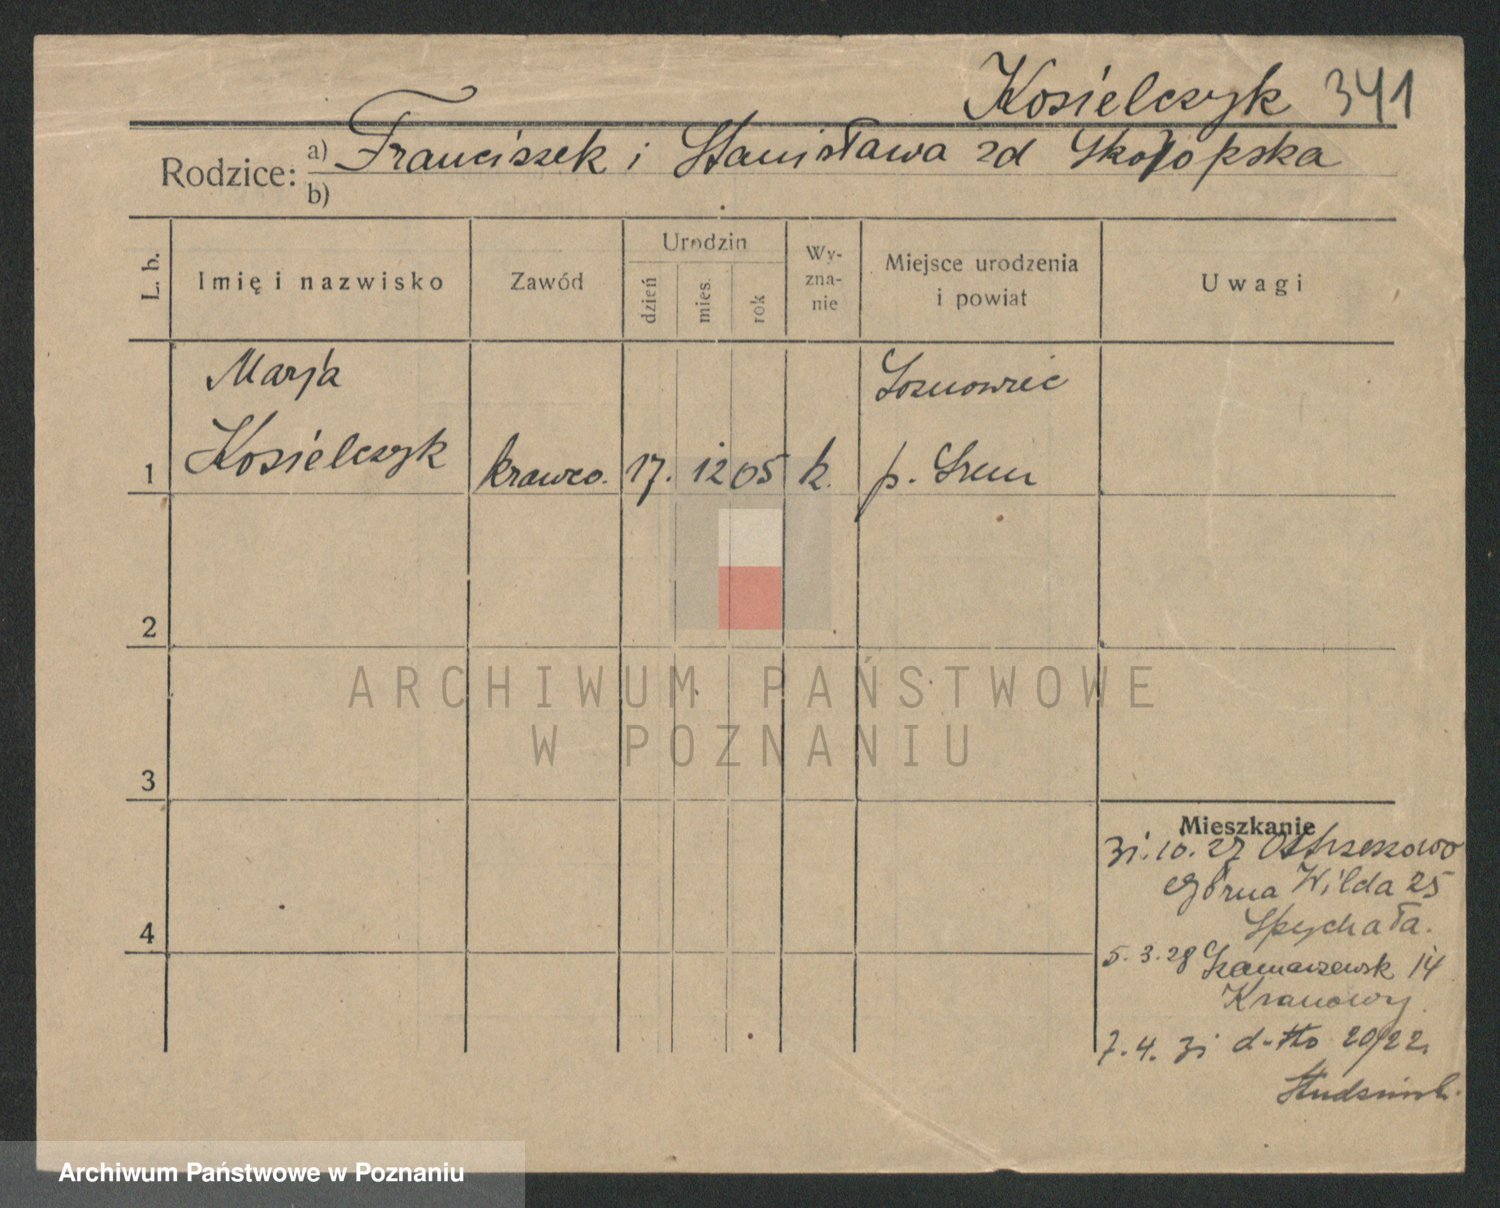 Kosielczyk 341
Rodzice: a) Franciszek i Stanisława zd
b)
L. b.
Imię i nazwisko
Zawód
Urodzin
dzień
mies.
rok
Wy-
zna-
nie
Miejsce urodzenia
i powiat
Uwagi
Marja
Kosielczyk
1
krawco.
17. 12 05
k.
p. Śrem
2
3
4
Mieszkanie
31.10.27 Ostrzeszowo
Górna Wilda 25
Spychała.
5.3.28 14
7.4.31 d-tto 20/22
ARCHIWUM PAŃSTWOWE
W POZNANIU
Archiwum Państwowe w Poznaniu